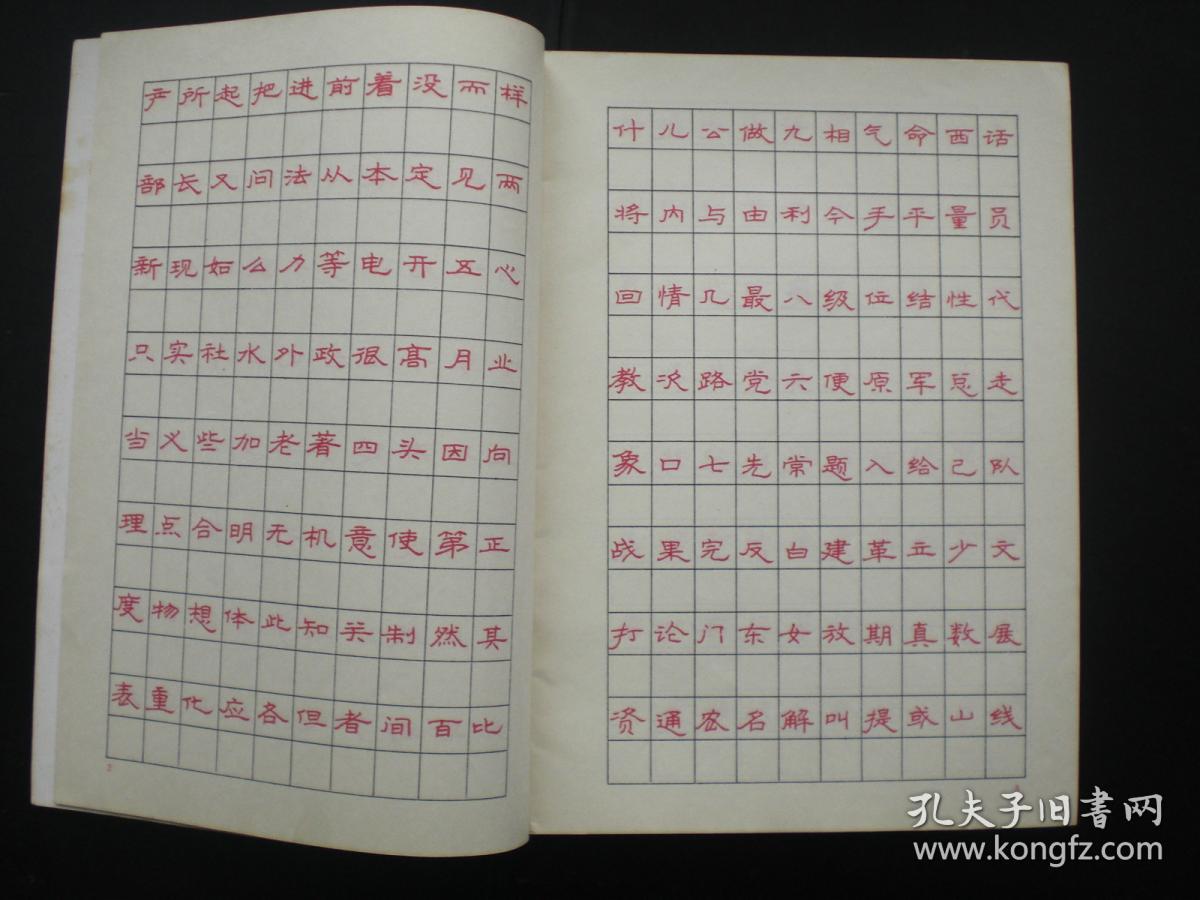 产所起把进前着没而样
部长又问法从本定见两
新现如么力等电开五心
只实社水外政很高月业
当义些加老著四头因向
理点合明无机意使第正
度物想体此知关制然其
表重化应各但者间百比
什儿公做九相气命西话
将内与由利今手平量员
回情几最八级位结性代
教次路党六便原军总走
象口七先常题入给己队
战果完反白建革立少文
打论门东女放期真数展
资通农名解叫提或山线
孔夫子旧书网
www.kongfz.com